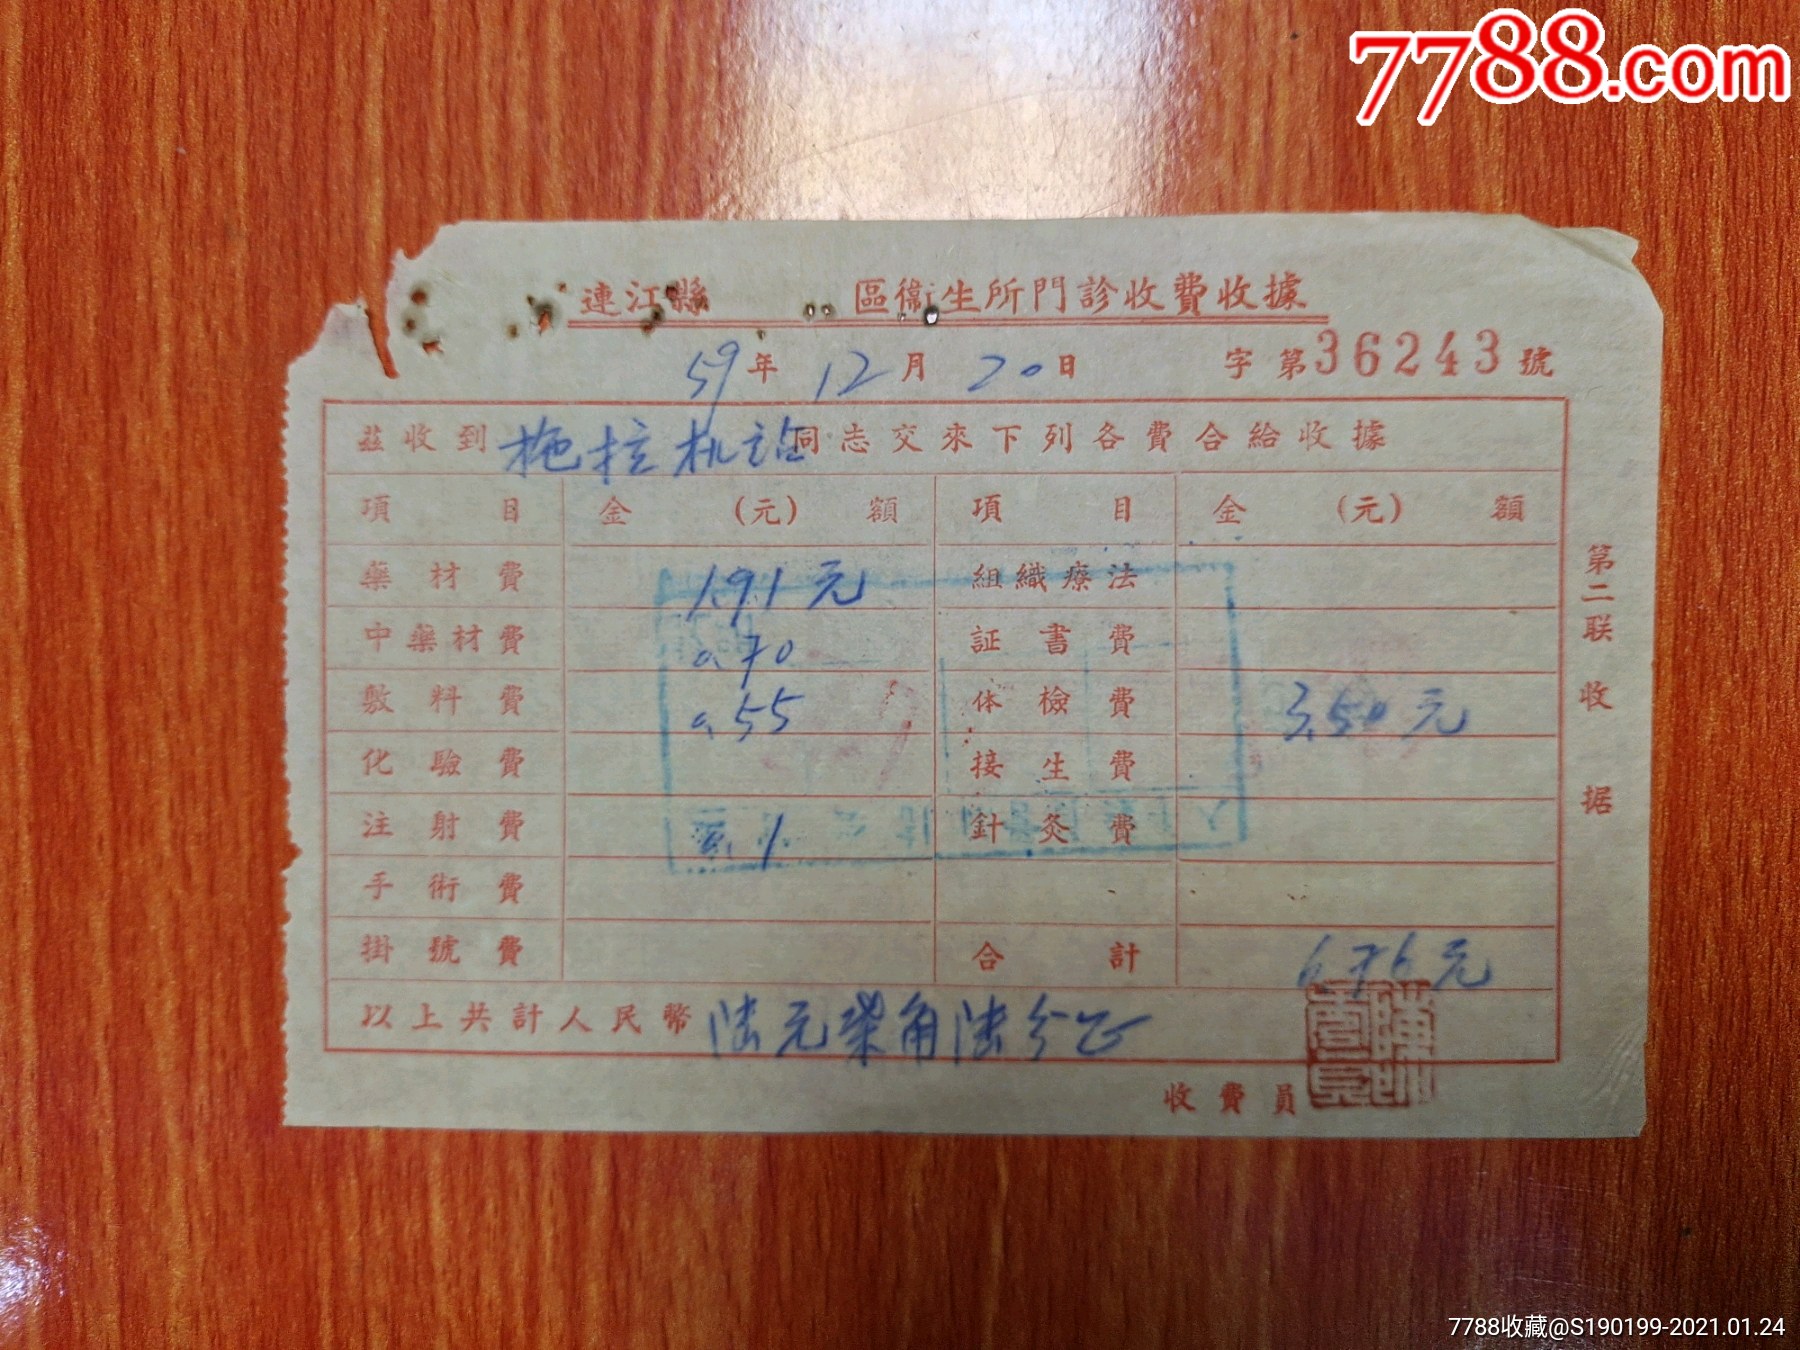 7788.com
連江縣 區衛生所門診收費收據
59年 12月 20日 字第36243號
茲收到 拖拉机站 同志交來下列各費合給收據
項目 金(元)額 項目 金(元)額
藥材費 1.91元 組織療法
中藥材費 0.70 証書費
敷料費 0.55 体檢費 3.50元
化驗費 接生費
注射費 0.1 針灸費
手術費
掛號費 合計 6.76元
以上共計人民幣 陆元柒角陆分正
收費員
第二联 收据
7788收藏@S190199-2021.01.24